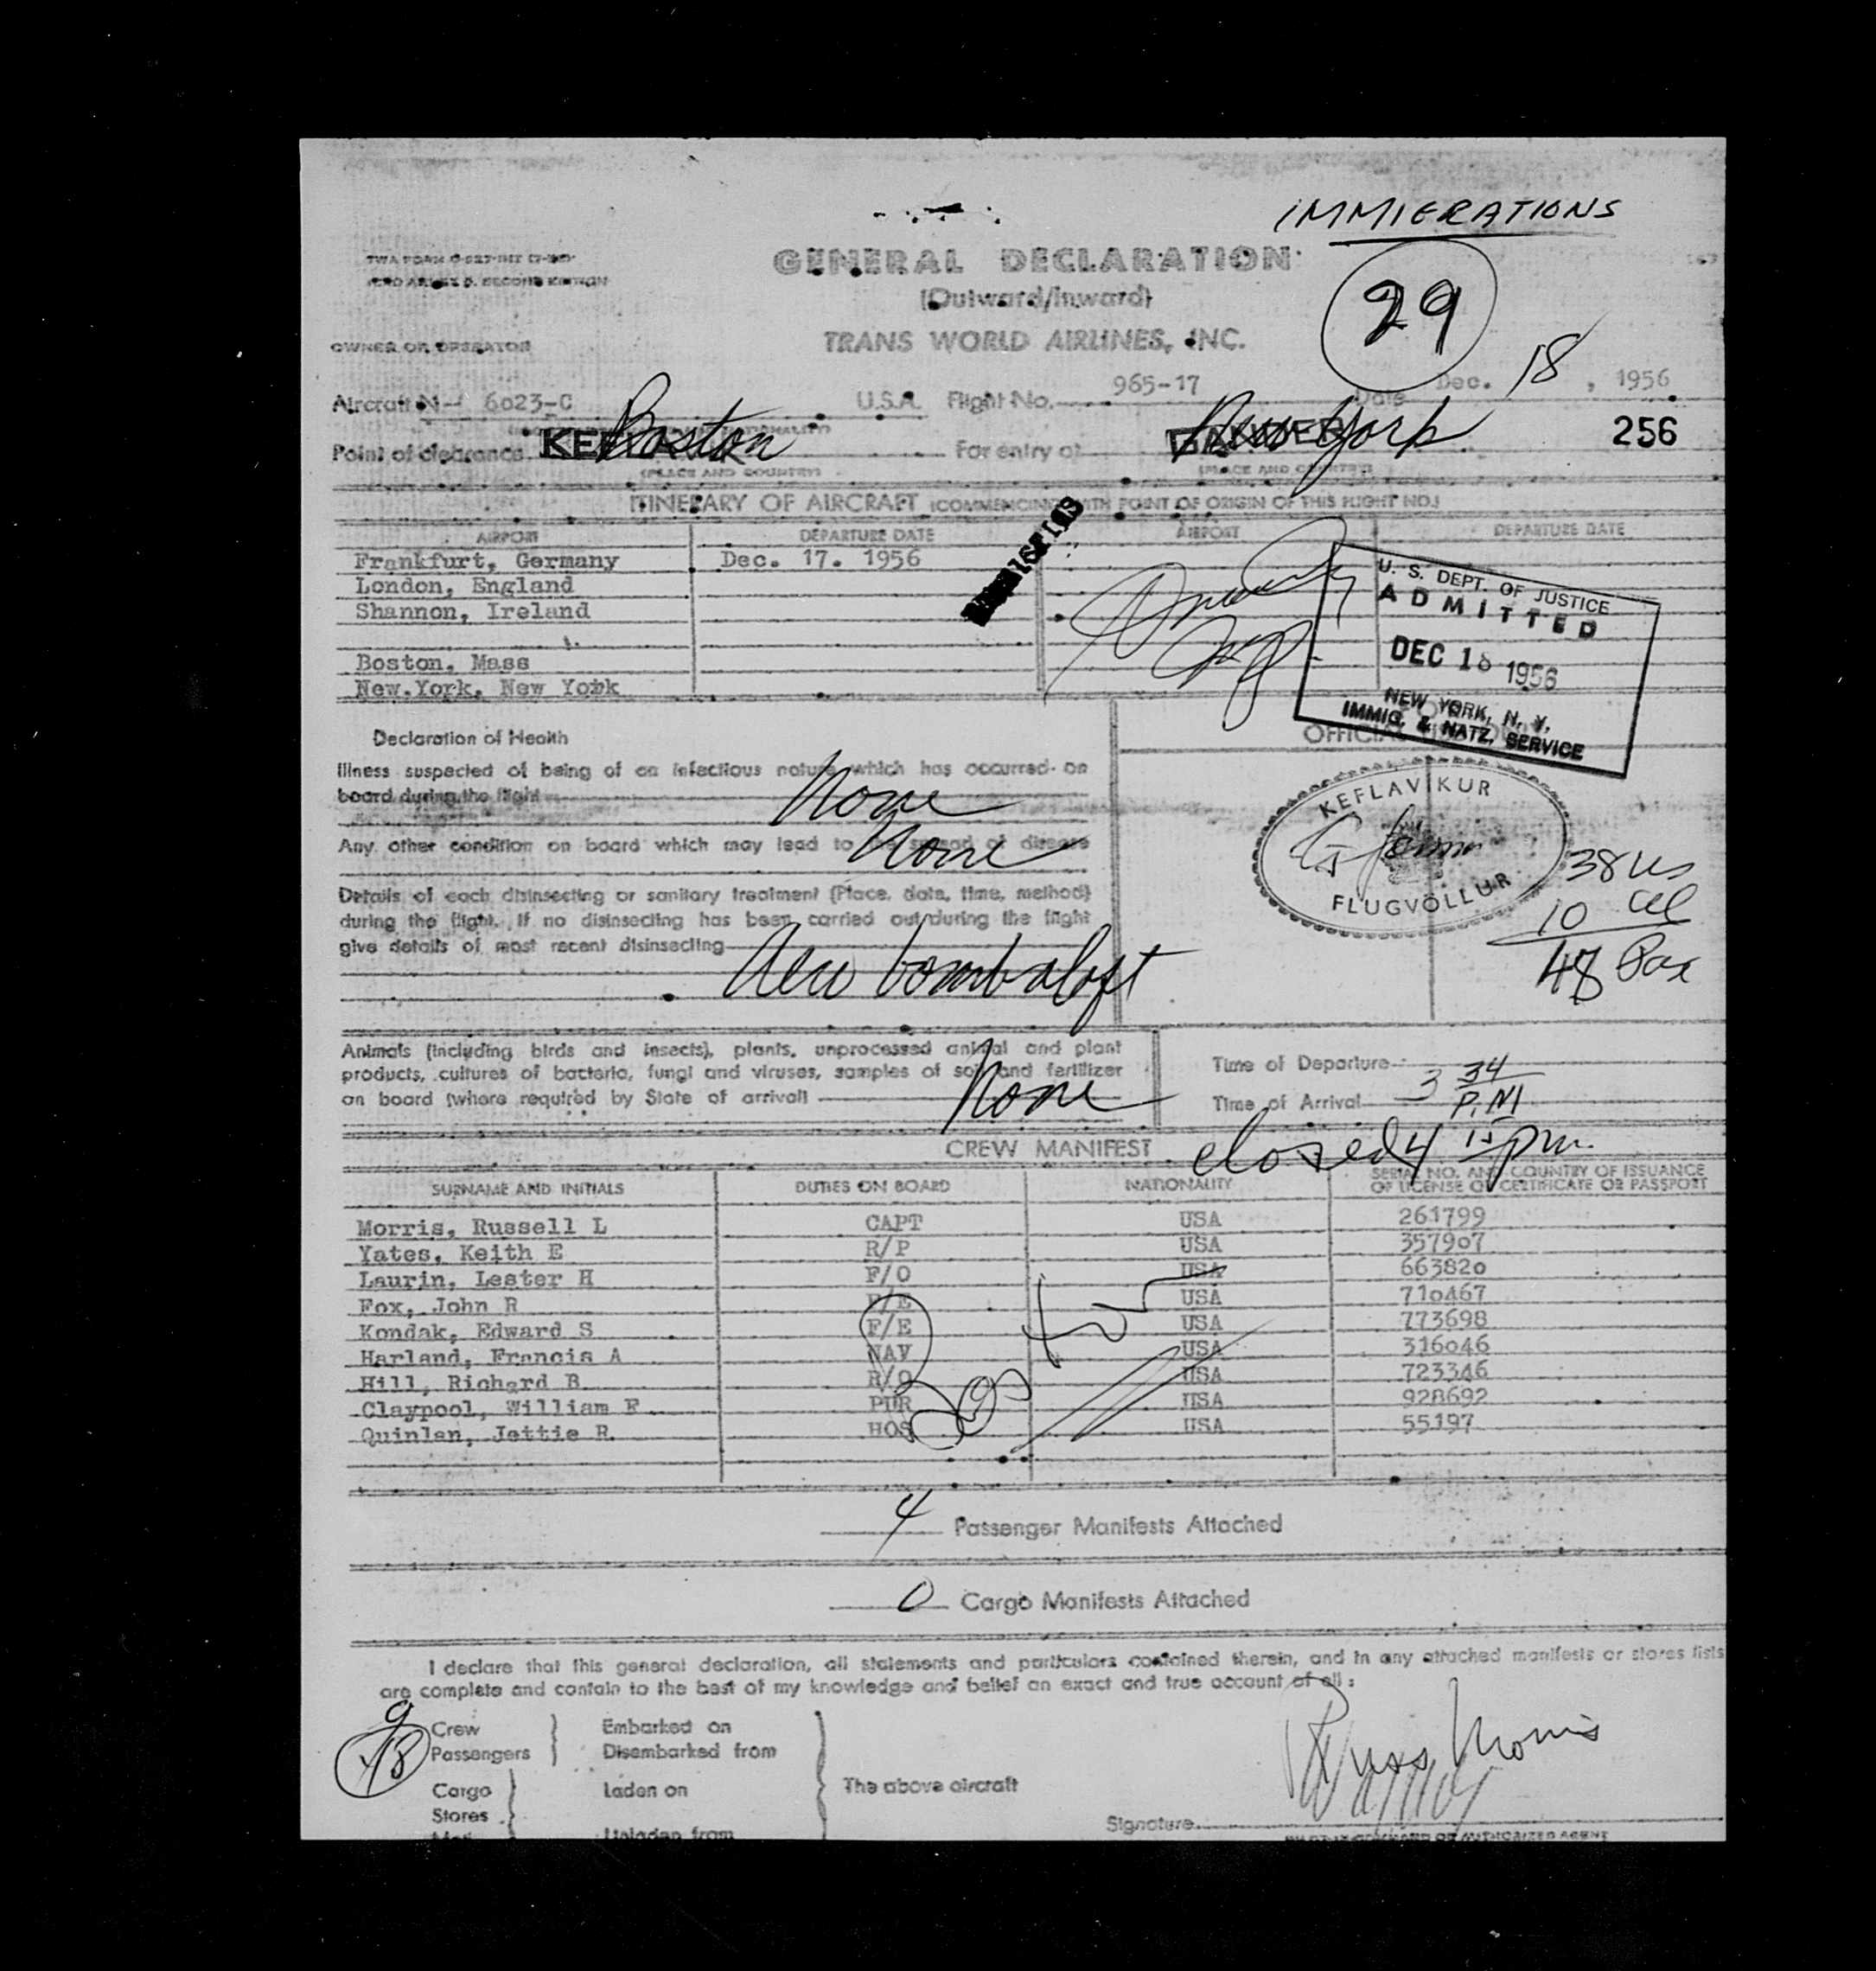 IMMIGRATIONS
GENERAL DECLARATION
(Outward/Inward)
29
OWNER OR OPERATOR
TRANS WORLD AIRLINES, INC.
Aircraft N- 6023-C U.S.A. Flight No. 965-17 Date Dec. 18, 1956
Point of clearance Boston For entry at New York 256
(PLACE AND COUNTRY) (PLACE AND COUNTRY)
ITINERARY OF AIRCRAFT (COMMENCING WITH POINT OF ORIGIN OF THIS FLIGHT NO.)
AIRPORT DEPARTURE DATE AIRPORT DEPARTURE DATE
Frankfurt, Germany Dec. 17. 1956
London, England
Shannon, Ireland
Boston, Mass
New.York, New York
U. S. DEPT. OF JUSTICE
ADMITTED
DEC 18 1956
NEW YORK, N. Y.
IMMIG. & NATZ. SERVICE
Declaration of Health OFFICIAL
Illness suspected of being of an infectious nature which has occurred on
board during the flight None
Any other condition on board which may lead to the spread of disease None
KEFLAVIKUR
FLUGVÖLLUR
38 US
10
48 Pax
Details of each disinsecting or sanitary treatment (Place, date, time, method)
during the flight. If no disinsecting has been carried out during the flight
give details of most recent disinsecting
Animals (including birds and insects), plants, unprocessed animal and plant
products, cultures of bacteria, fungi and viruses, samples of soil and fertilizer
on board (where required by State of arrival) None
Time of Departure
Time of Arrival 3 34 P.M
closed 4 pm
CREW MANIFEST
SURNAME AND INITIALS DUTIES ON BOARD NATIONALITY SERIAL NO. AND COUNTRY OF ISSUANCE
OF LICENSE OR CERTIFICATE OR PASSPORT
Morris, Russell L CAPT USA 261799
Yates, Keith E R/P USA 357907
Laurin, Lester H F/O USA 663820
Fox, John R F/E USA 710467
Kondak, Edward S F/E USA 773698
Harland, Francis A NAV USA 316046
Hill, Richard B R/O USA 723346
Claypool, William F PUR USA 928692
Quinlan, Jettie R. HOS USA 55197
4 Passenger Manifests Attached
0 Cargo Manifests Attached
I declare that this general declaration, all statements and particulars contained therein, and in any attached manifests or stores lists
are complete and contain to the best of my knowledge and belief an exact and true account of all :
9 Crew Embarked on
48 Passengers Disembarked from
Cargo Laden on The above aircraft
Stores
Unladen from
Russ Morris
Signature